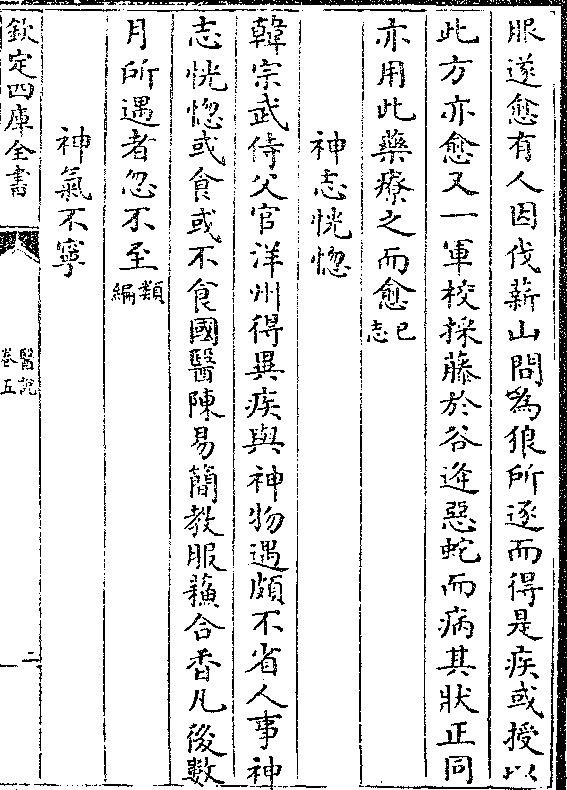 服遂愈有人因伐薪山間為狼所逐而得是疾或授以
此方亦愈又一軍校採藤於谷逢惡蛇而病其狀正同
亦用此藥療之而愈已志
神志恍惚
韓宗武侍父官洋州得異疾與神物遇頗不省人事神
志恍惚或食或不食國醫陳易簡教服蘓合香丸後數
月所遇者忽不至類編
神氣不寧
欽定四庫全書
醫說
卷五
二